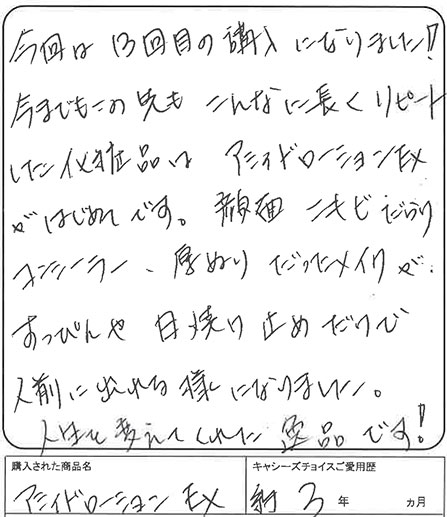 今回は13回目の購入になりました!
今までもこの先もこんなに長くリピート
した化粧品はアシィドローションEX
がはじめてです。顔面ニキビだらけ
コンシーラー、厚ぬりだったメイクが、
すっぴんや日焼け止めだけで
人前に出れる様になりました。
人生を変えてくれた商品です!
購入された商品名 キャシーズチョイスご愛用歴
アシィドローションEX 約3年 ヵ月